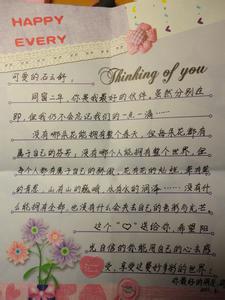 HAPPY
EVERY
Thinking of you
可爱的石云舒：
同窗二年，你是我最好的伙伴，虽然分别在
即，但我仍不会忘记我们的一点一滴……
没有哪朵花能拥有整个春天，但每朵花都有
属于自己的芬芳，没有哪个人能拥有整个世界，但
每个人都有属于自己的骄傲，花有花的灿烂，草有草
的青葱，山有山的巍峨，水有水的润泽……没有什
么能拥有全部，也没有什么会失去自己的色彩与光亮
这个“♡”送给你，希望阳
光自信的你能用自己的心去感
受，享受这美好多彩的世界！
你最好的朋友